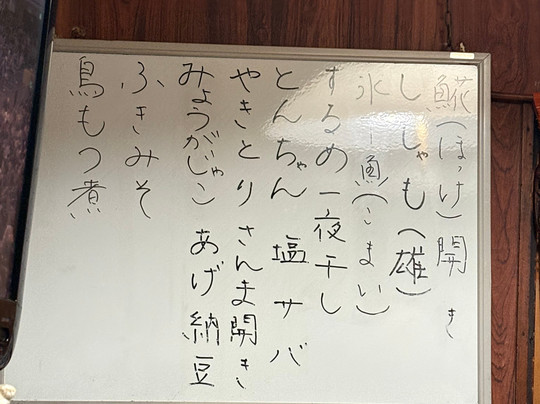 𩸽(ほっけ)開き
ししゃも(雄)
氷下魚(こまい)
するめ一夜干し
とんちゃん 塩サバ
やきとり さんま開き
みょうがじゃこ あげ納豆
ふきみそ
鳥もつ煮